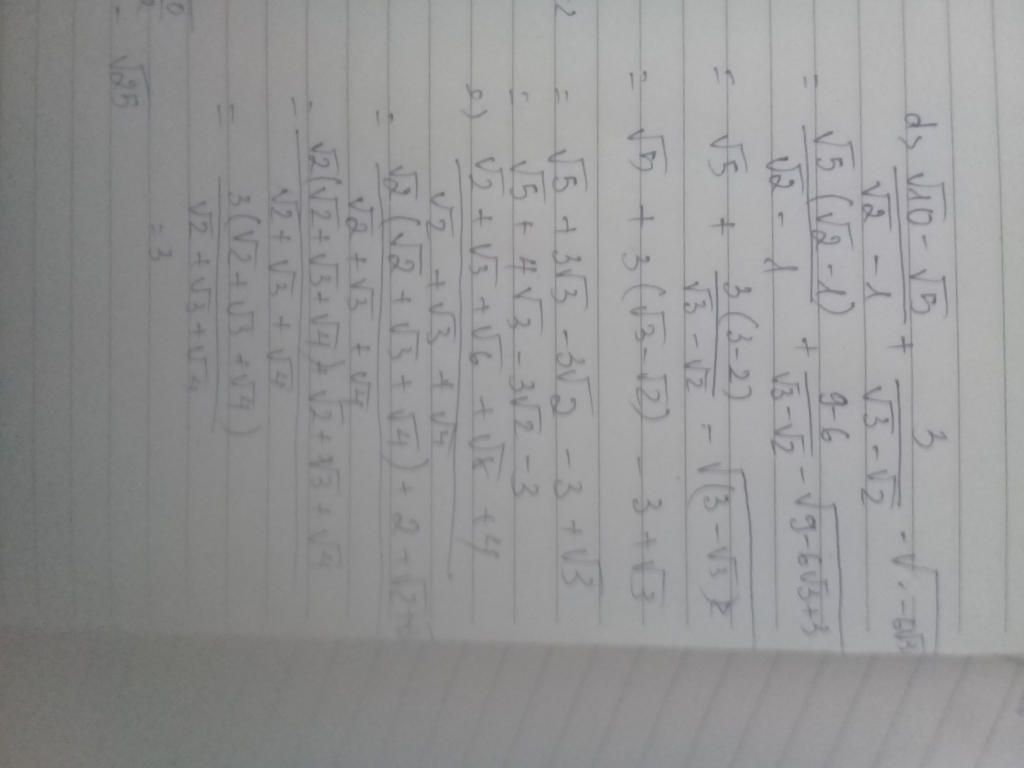 d) (√10 - √5)/(√2 - 1) + 3/(√3 - √2) - √
= √5(√2 - 1)/(√2 - 1) + (9-6)/(√3 - √2) - √(9-6√3+3)
= √5 + 3(3-2)/(√3 - √2) - √(3-√3)2
= √5 + 3(√3-√2) - 3+√3
= √5 + 3√3 - 3√2 - 3 + √3
= √5 + 4√3 - 3√2 - 3
e) (√2 + √3 + √6 + √8 + 4)/(√2 + √3 + √4)
= (√2(√2 + √3 + √4) + 2 + √2+)/(√2 + √3 + √4)
= (√2(√2 + √3 + √4) + √2 + √3 + √4)/(√2 + √3 + √4)
= 3(√2 + √3 + √4)/(√2 + √3 + √4)
= 3
- √25